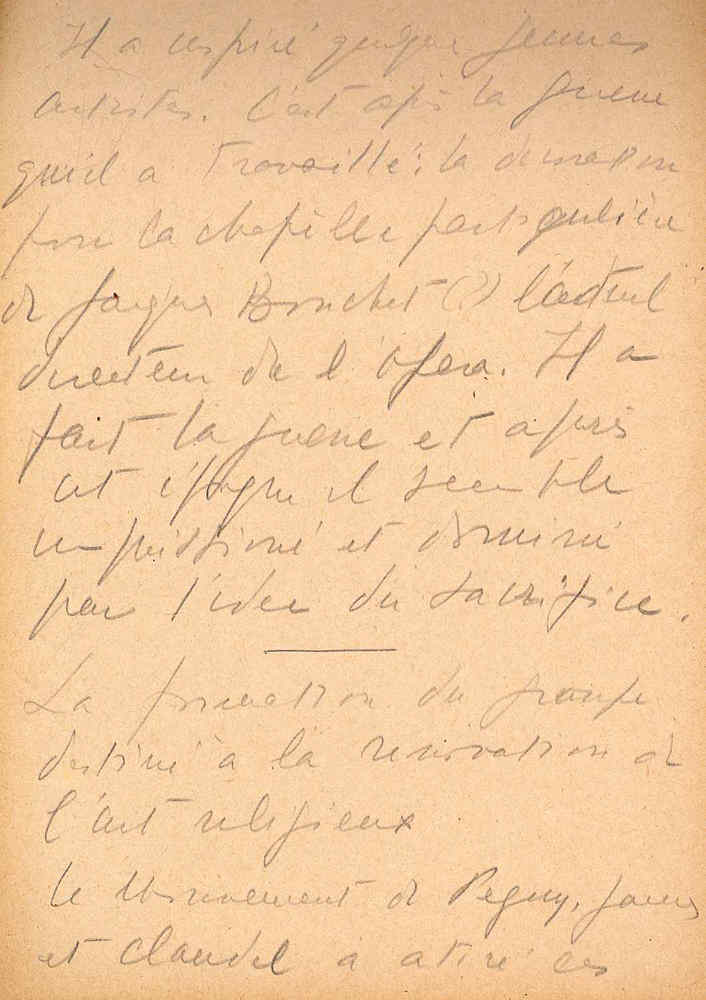 Il a inspiré quelque jeunes
artistes. C'est après la guerre
qu'il a travaillé: la décoration
pour la chapelle particulière
de Jacques Brouchet (?) l'actuel
directeur de l'opera. Il a
fait la guerre et après
cet époque il semble
impressioné et dominé
par l'idée du sacrifice.
La formation du groupe
destiné à la renovation de
l'art religieux
le mouvement de Peguy, James
et Claudel a atiré ces